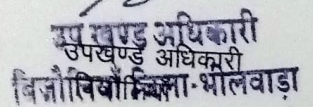 उप खण्ड अधिकारी
उपखण्ड अधिकारी
बिजौलियाँ जिला-भीलवाड़ा